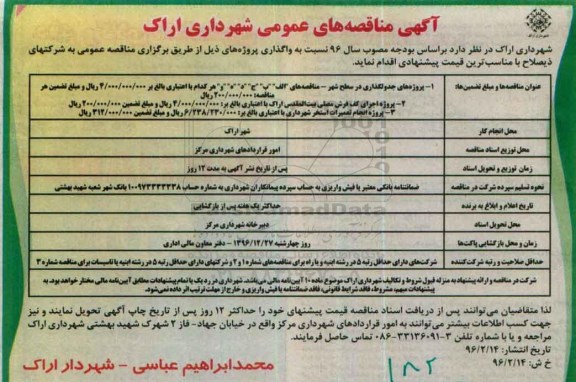 آگهی مناقصه‌های عمومی شهرداری اراک
شهرداری اراک در نظر دارد براساس بودجه مصوب سال ۹۶ نسبت به واگذاری پروژه‌های ذیل از طریق برگزاری مناقصه عمومی به شرکتهای
ذیصلاح با مناسب‌ترین قیمت پیشنهادی اقدام نماید.
عنوان مناقصه‌ها و مبلغ تضمین‌ها:
۱- پروژه‌های جدولگذاری در سطح شهر – مناقصه‌های "الف" "ب" "ج" "د" "ه" "و" هر کدام با اعتباری بالغ بر ۴/۰۰۰/۰۰۰/۰۰۰ ریال و مبلغ تضمین هر
مناقصه: ۲۰۰/۰۰۰/۰۰۰ ریال
۲- پروژه اجرای کف فرش مصلی بیت‌المقدس اراک با اعتباری بالغ بر: ۴/۰۰۰/۰۰۰/۰۰۰ ریال و مبلغ تضمین ۲۰۰/۰۰۰/۰۰۰ ریال
۳- پروژه انجام تعمیرات استخر شهرداری با اعتباری بالغ بر: ۶/۲۳۸/۲۳۰/۰۰۰ ریال و مبلغ تضمین ۳۱۲/۰۰۰/۰۰۰ ریال
محل انجام کار
شهر اراک
محل توزیع اسناد مناقصه
امور قراردادهای شهرداری مرکز
زمان توزیع و تحویل اسناد
پس از تاریخ نشر آگهی به مدت ۱۲ روز
نحوه تسلیم سپرده شرکت در مناقصه
ضمانتنامه بانکی معتبر یا فیش واریزی به حساب سپرده پیمانکاران شهرداری به شماره حساب ۱۰۰۹۷۳۳۳۳۳۳۸ بانک شهر شعبه شهید بهشتی
تاریخ اعلام و ابلاغ به برنده
حداکثر یک هفته پس از بازگشایی
محل تحویل اسناد
دبیرخانه شهرداری مرکز
زمان و محل بازگشایی پاکت‌ها
روز چهارشنبه ۱۳۹۶/۱۲/۲۷ – دفتر معاون مالی اداری
حداقل صلاحیت و رتبه شرکت‌کننده
شرکت‌های دارای حداقل رتبه ۵ در رشته ابنیه و یا راه برای مناقصه‌های شماره ۱ و ۲ و شرکتهای دارای حداقل رتبه ۵ در رشته ابنیه یا تاسیسات برای مناقصه شماره ۳
شرکت در مناقصه و ارائه پیشنهاد به منزله قبول شروط و تکالیف شهرداری اراک موضوع ماده ۱۰ آیین‌نامه مالی می‌باشد. شهرداری در رد یک یا تمام پیشنهادات مطابق آیین‌نامه مالی مختار خواهد بود. به
پیشنهادات مبهم، مشروط، فاقد شرایط قانونی، فاقد ضمانتنامه یا فیش واریزی و خارج از مهلت ترتیب اثر داده نمی‌شود.
لذا متقاضیان می‌توانند پس از دریافت اسناد مناقصه قیمت پیشنهادی خود را حداکثر ۱۲ روز پس از تاریخ چاپ آگهی تحویل نمایند و نیز
جهت کسب اطلاعات بیشتر می‌توانند به امور قراردادهای شهرداری مرکز واقع در خیابان جهاد- فاز ۲ شهرک شهید بهشتی شهرداری اراک
مراجعه و یا با شماره تلفن ۳-۳۳۱۳۶۰۹۱-۰۸۶ تماس حاصل فرمایند.
تاریخ انتشار: ۹۶/۲/۱۴
خ ش: ۹۶/۲/۱۴
محمدابراهیم عباسی – شهردار اراک
۱۸۲